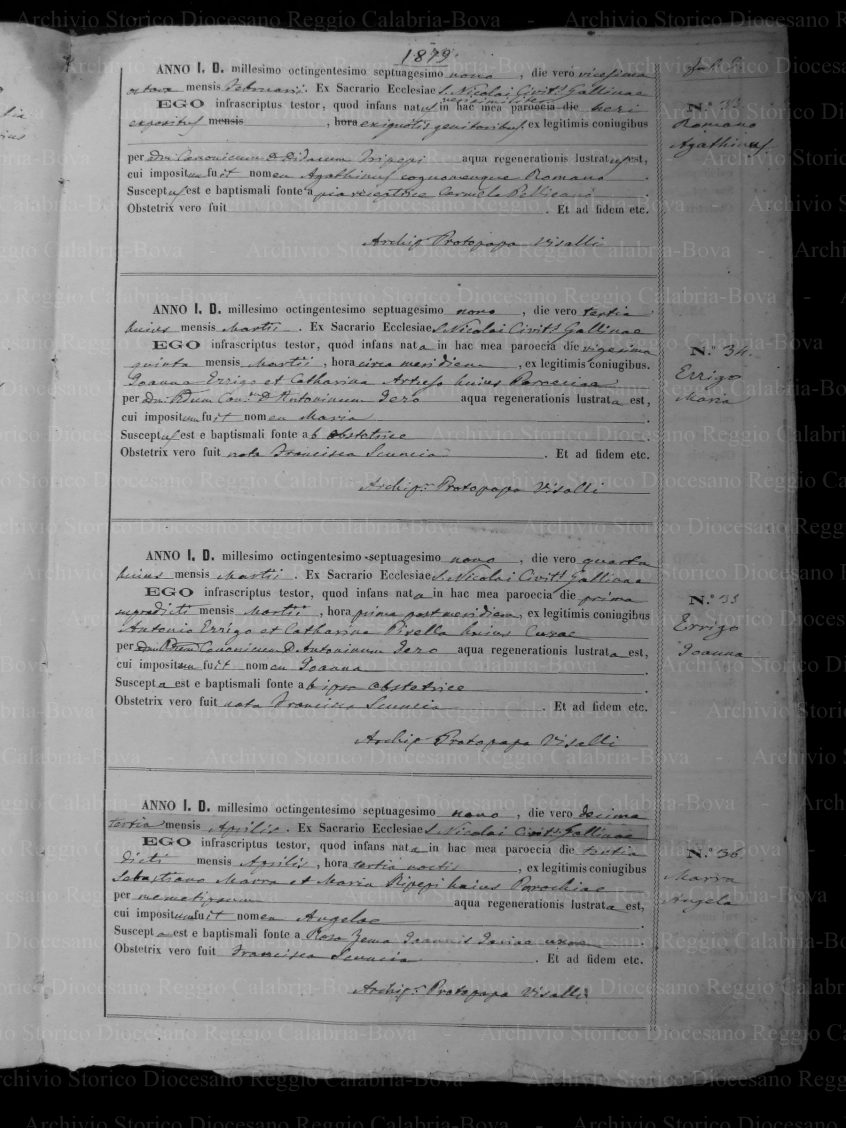 1879
ANNO I. D. millesimo octingentesimo septuagesimo nono, die vero vicesima
octava mensis Februarii. Ex Sacrario Ecclesiae S. Nicolai Civits Gallinae
EGO infrascriptus testor, quod infans natus in hac mea paroecia die heri
expositus mensis, hora ex ignotis genitoribus, ex legitimis coniugibus
per Dm Canonicum D. Tripepi aqua regenerationis lustratus est,
cui impositum fuit nomen Agathinus cognomenque Romano.
Susceptus est e baptismali fonte a pia receptrice Carmela Pellicanò
Obstetrix vero fuit. Et ad fidem etc.
Archip Protopapa Visalli
N.º 33
Romano
Agathinus
ANNO I. D. millesimo octingentesimo septuagesimo nono, die vero tertia
huius mensis Martii. Ex Sacrario Ecclesiae S. Nicolai Civits Gallinae
EGO infrascriptus testor, quod infans nata in hac mea paroecia die vigesima
quinta mensis Martii, hora circa meridiem, ex legitimis coniugibus.
Joanna Errigo et Catharina Artuso huius Paroeciae
per Dm Can. D. Antoninum Jero aqua regenerationis lustrata est,
cui impositum fuit nomen Maria.
Susceptus est e baptismali fonte ab obstetrice
Obstetrix vero fuit nota Francisca Scuncia. Et ad fidem etc.
Archip. Protopapa Visalli
N.º 34.
Errigo
Maria
ANNO I. D. millesimo octingentesimo septuagesimo nono, die vero quarta
huius mensis Martii. Ex Sacrario Ecclesiae S. Nicolai Civits Gallinae
EGO infrascriptus testor, quod infans nata in hac mea paroecia die prima
supradicti mensis Martii, hora prima post meridiem, ex legitimis coniugibus
Antonio Errigo et Catharina Pirella huius Curae
per Canonicum D. Antoninum Jero aqua regenerationis lustrata est,
cui impositum fuit nomen Joanna.
Suscepta est e baptismali fonte ab ipsa obstetrice
Obstetrix vero fuit nota Francisca Scuncia. Et ad fidem etc.
Archip Protopapa Visalli
N.º 35
Errigo
Joanna
ANNO I. D. millesimo octingentesimo septuagesimo nono, die vero decima
tertia mensis Aprilis. Ex Sacrario Ecclesiae S. Nicolai Civits Gallinae
EGO infrascriptus testor, quod infans nata in hac mea paroecia die tertia
dicti mensis Aprilis, hora tertia noctis, ex legitimis coniugibus
Sebastiano Marra et Maria Ripepi huius Parochiae
per memetipsum aqua regenerationis lustrata est,
cui impositum fuit nomen Angelae.
Suscepta est e baptismali fonte a Rosa Zema Joannis uxore
Obstetrix vero fuit Francisca Scuncia. Et ad fidem etc.
Archip. Protopapa Visalli
N.º 36
Marra
Angela
Archivio Storico Diocesano Reggio Calabria-Bova